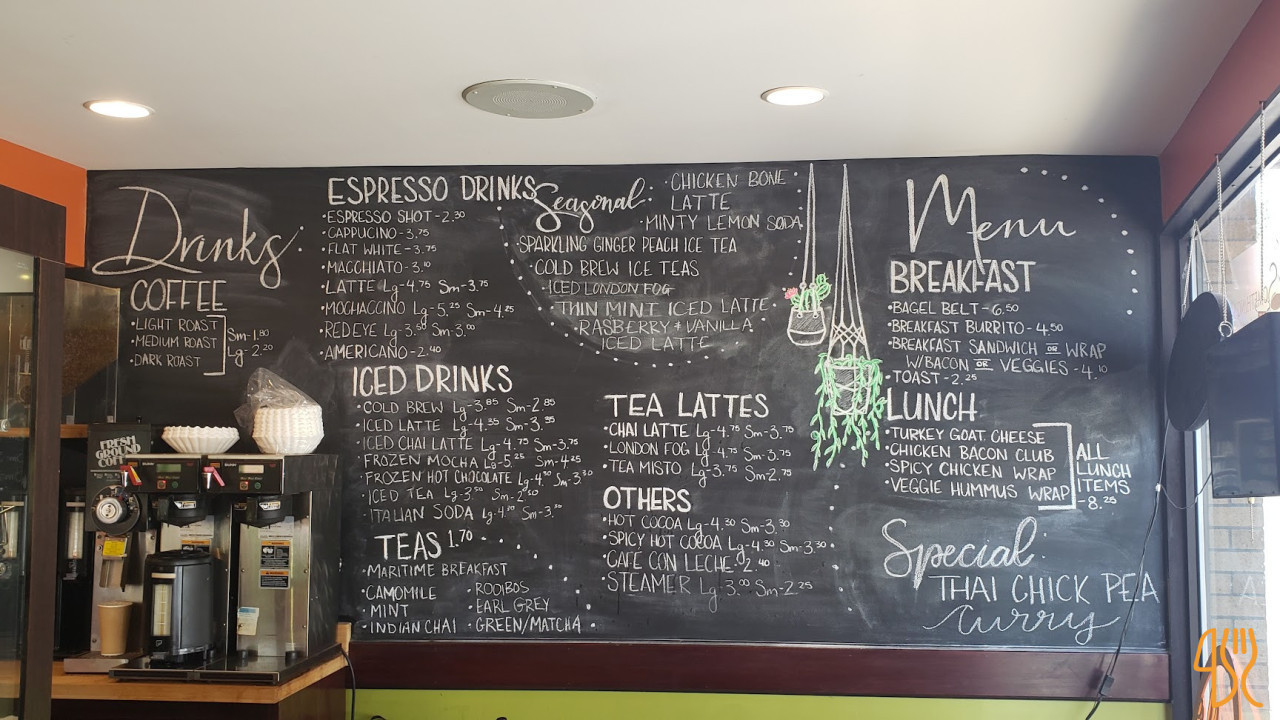 Drinks:
COFFEE
• LIGHT ROAST
• MEDIUM ROAST
• DARK ROAST
Sm-1.80
Lg-2.20
ESPRESSO DRINKS
• ESPRESSO SHOT-2.30
• CAPPUCINO-3.75
• FLAT WHITE-3.75
• MACCHIATO-3.10
• LATTE Lg-4.75 Sm-3.75
• MOCHACCINO Lg-5.25 Sm-4.25
• REDEYE Lg-3.50 Sm-3.00
• AMERICANO-2.40
ICED DRINKS
• COLD BREW Lg-3.85 Sm-2.85
• ICED LATTE Lg-4.35 Sm-3.35
• ICED CHAI LATTE Lg-4.75 Sm-3.75
• FROZEN MOCHA Lg-5.25 Sm-4.25
• FROZEN HOT CHOCOLATE Lg-4.30 Sm-3.30
• ICED TEA Lg-3.50 Sm-2.50
• ITALIAN SODA Lg-4.20 Sm-3.20
TEAS 1.70
• MARITIME BREAKFAST
• CAMOMILE
• MINT
• INDIAN CHAI
• ROOIBOS
• EARL GREY
• GREEN/MATCHA
Seasonal:
• CHICKEN BONE
LATTE
• MINTY LEMON SODA
• SPARKLING GINGER PEACH ICE TEA
• COLD BREW ICE TEAS
• ICED LONDON FOG
• THIN MINT ICED LATTE
• RASBERRY + VANILLA
ICED LATTE
TEA LATTES
• CHAI LATTE Lg-4.75 Sm-3.75
• LONDON FOG Lg-4.75 Sm-3.75
• TEA MISTO Lg-3.75 Sm 2.75
OTHERS
• HOT COCOA Lg-4.30 Sm-3.30
• SPICY HOT COCOA Lg-4.30 Sm-3.30
• CAFÉ CON LECHE-2.40
• STEAMER Lg 3.00 Sm-2.25
Menu
BREAKFAST
• BAGEL BELT-6.50
• BREAKFAST BURRITO-4.50
• BREAKFAST SANDWICH OR WRAP
W/BACON OR VEGGIES-4.10
• TOAST-2.25
LUNCH
• TURKEY GOAT CHEESE
• CHICKEN BACON CLUB
• SPICY CHICKEN WRAP
• VEGGIE HUMMUS WRAP
ALL
LUNCH
ITEMS
-8.25
Special:
THAI CHICK PEA
Curry
FRESH
GROUND